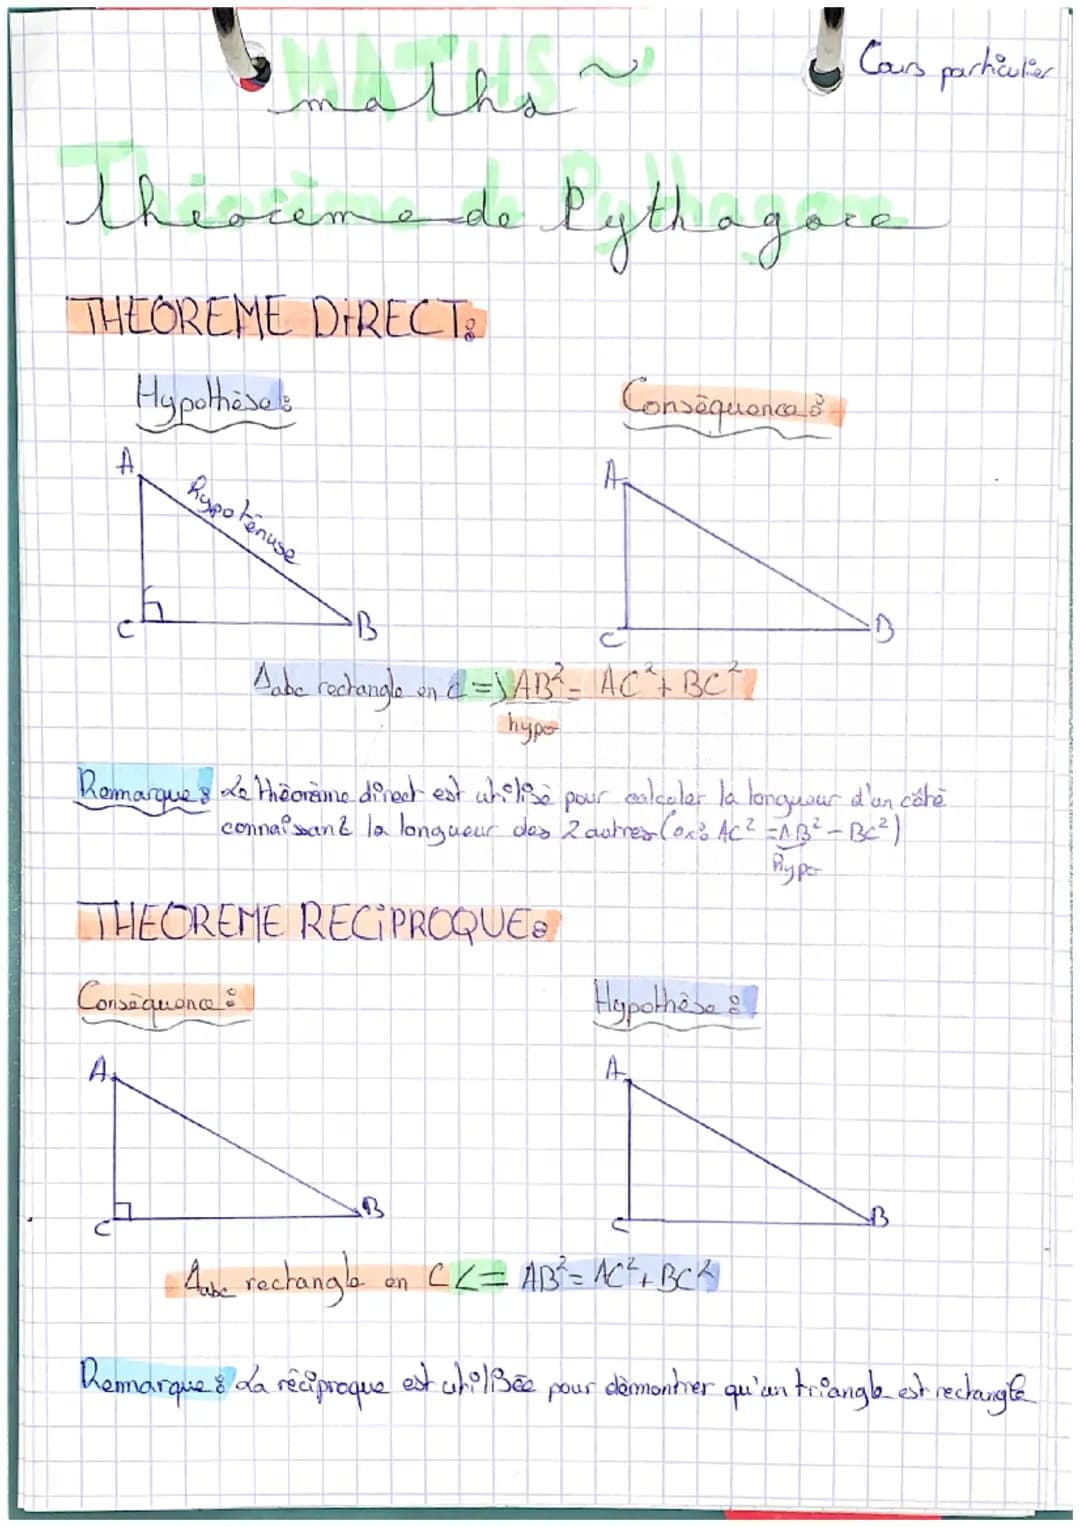 MATHS ~
maths
Cours particulier
Théorème de Pythagore
THEOREME DIRECT:
Hypothèse:
Conséquence:
A
hypoténuse
C
B
A
C
B
Δabc rectangle en C => AB² = AC² + BC²
hypo
Remarque: Le théorème direct est utilisé pour calculer la longueur d'un côté
connaissant la longueur des 2 autres (ex: AC² = AB² - BC²)
hypo
THEOREME RECIPROQUE:
Conséquence:
Hypothèse:
A
C
B
A
C
B
Δabc rectangle en C <= AB² = AC² + BC²
Remarque: La réciproque est utilisée pour démontrer qu'un triangle est rectangle